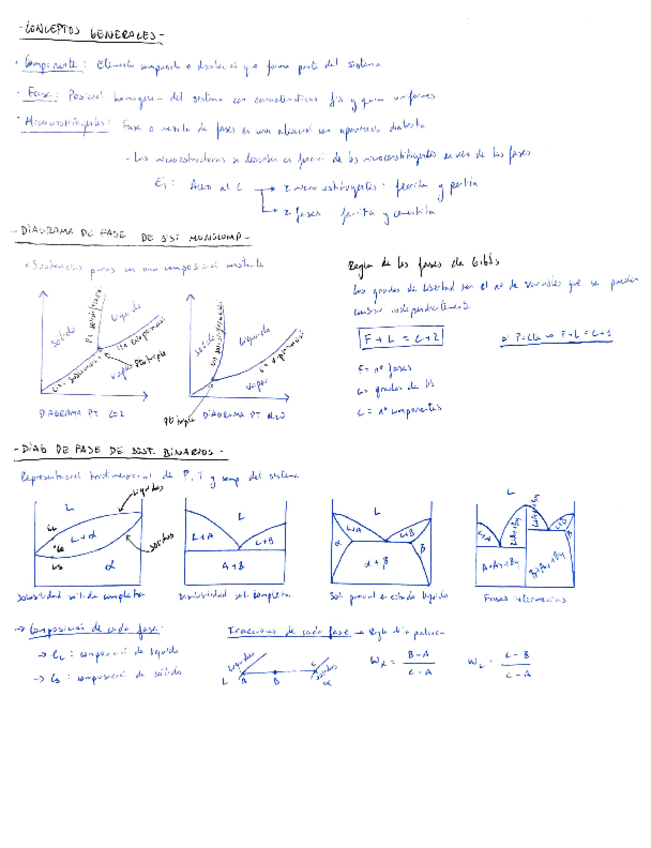 - CONCEPTOS GENERALES -
· Componente: Elemento compuesto o disolución que forma parte del sistema
· Fase: Porción homogénea del sistema con características fis y quim uniformes
· Microconstituyentes: Fase o mezcla de fases en una aleación con apariencia distinta
- Las microestructuras se describen en función de los microconstituyentes en vez de las fases
Ej: Acero al C → 2 microconstituyentes: ferrita y perlita
→ 2 fases: ferrita y cementita
- DIAGRAMA DE FASE DE SIST MONOCOMP -
Sustancias puras con una composición constante
Regla de las fases de Gibbs
Los grados de libertad son el nº de variables que se pueden
cambiar independientemente
F + L = C + 2
Si P=cte ⇒ F + L = C + 1
F = nº fases
L = grados de lib
C = nº componentes
Sólido
Líquido
Vapor
Pto triple
Sólido
Líquido
Vapor
DIAGRAMA PT CO2
Pto triple
DIAGRAMA PT H2O
- DIAG DE FASE DE SIST. BINARIOS -
Representación tridimensional de P, T y comp del sistema
L
Liquidus
L + α
Solidus
α
L
L + A
L + B
A + B
L
L + A
L + B
α
α + β
β
L
Solubilidad sólida completa
Insolubilidad sol. completa
Sol parcial en estado líquido
Fases intermedias
→ Composición de cada fase:
→ CL: composición de líquido
→ CS: composición de sólido
Fracciones de cada fase → Regla de la palanca
Liquidus
Solidus
L A B C α
Wα = B - A / C - A
WL = C - B / C - A